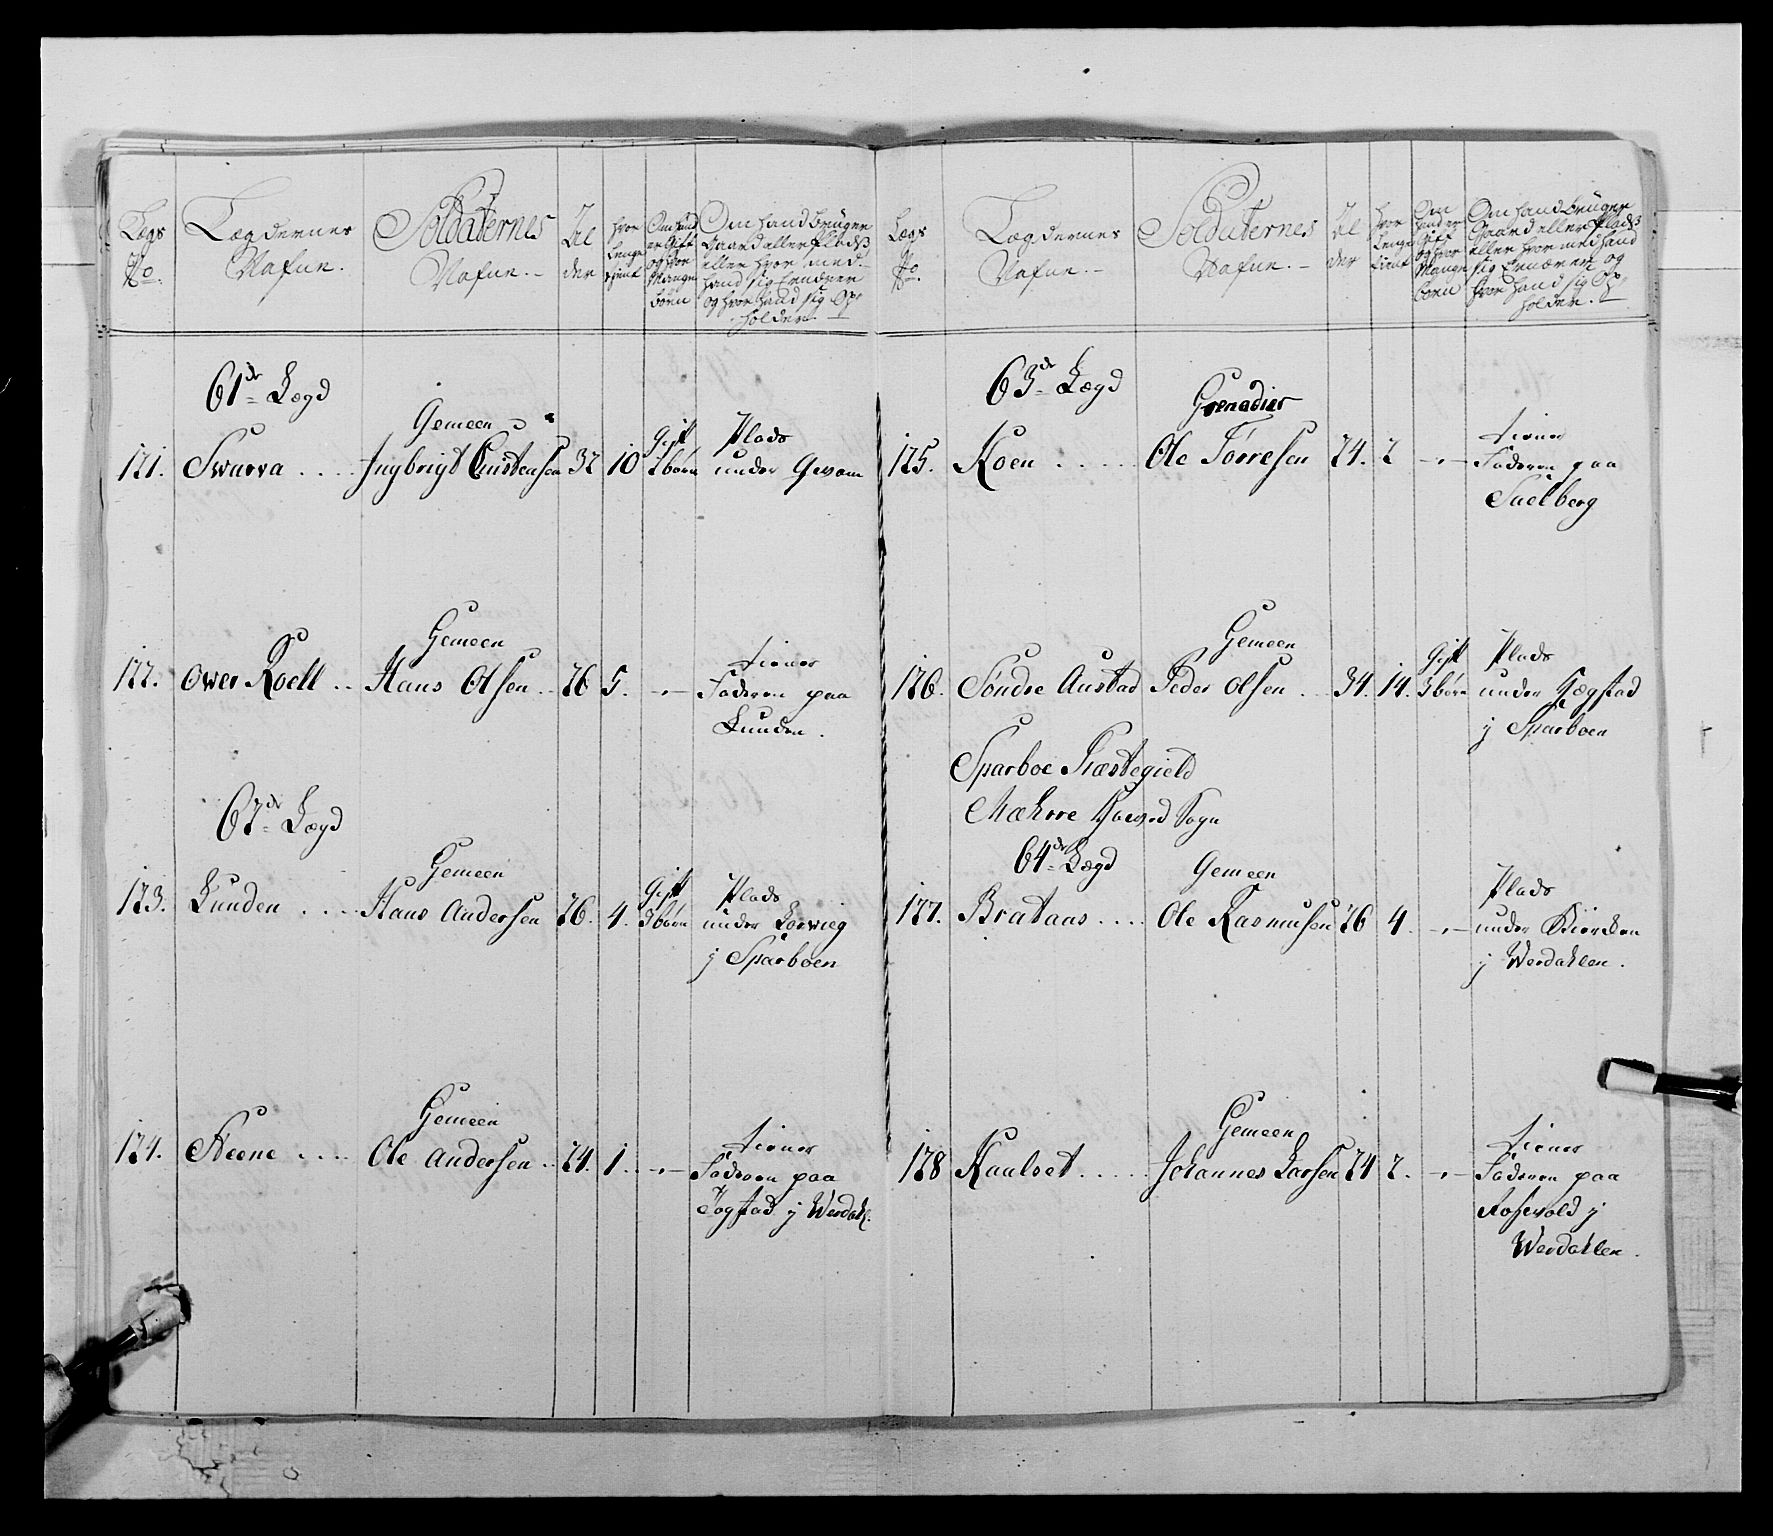 Lægs No.
Lægdernes Nafne.
Soldaternes Nafne.
Al der
hvor Lenge tient
Om hand er Gift og hvor Mange børn
Om hand bruger
Gaard eller Pladß
eller hvor med
hand sig Ernærer
og hvor hand sig Op
holder.
61de Lægd
Gemeen
121. Swarva .... Ingbrigt Christensen 32 10 Gift 2 børn Plads
under Gevom
Gemeen
122. Over Roell .. Hans Olsen .. 26 5. -,- tiener
Faderen paa
Lunden.
62de Lægd
Gemeen
123. Lunden .... Hans Andersen 26. 4. Gift 3 børn Plads
under Lorvig
j Sparboen
Gemeen
124. Steene .... Ole Andersen .. 24. 1. -,- tiener
Faderen paa
Togstad j Werdahl.
Lægs No.
Lægdernes Nafne.
Soldaternes Nafne.
Al der
hvor Lenge tient
Om hand er Gift og hvor Mange børn
Om hand bruger
Gaard eller Pladß
eller hvor med hand
sig Ernærer og
hvor hand sig Op
holder.
63de Lægd
Grenadier
125. Moen ..... Ole Torresen 24. 2 -,- tiener
Faderen paa
Suelberg
Gemeen
126. Søndre Austad Peder Olsen .. 34. 14. Gift 3 børn Plads
under Gegstad
j Sparboen
Sparboe Præstegield
Mæhrre Hoved Sogn
64de Lægd
Gemeen
127. Brataas .... Ole Rasmusen 26 4. -,- Plads
under Biercken
j Werdahlen.
Gemeen
128 Kaalset ..... Johannes Larsen 24 2. -,- tiener
Faderen paa
Rosevold j
Werdahlen.